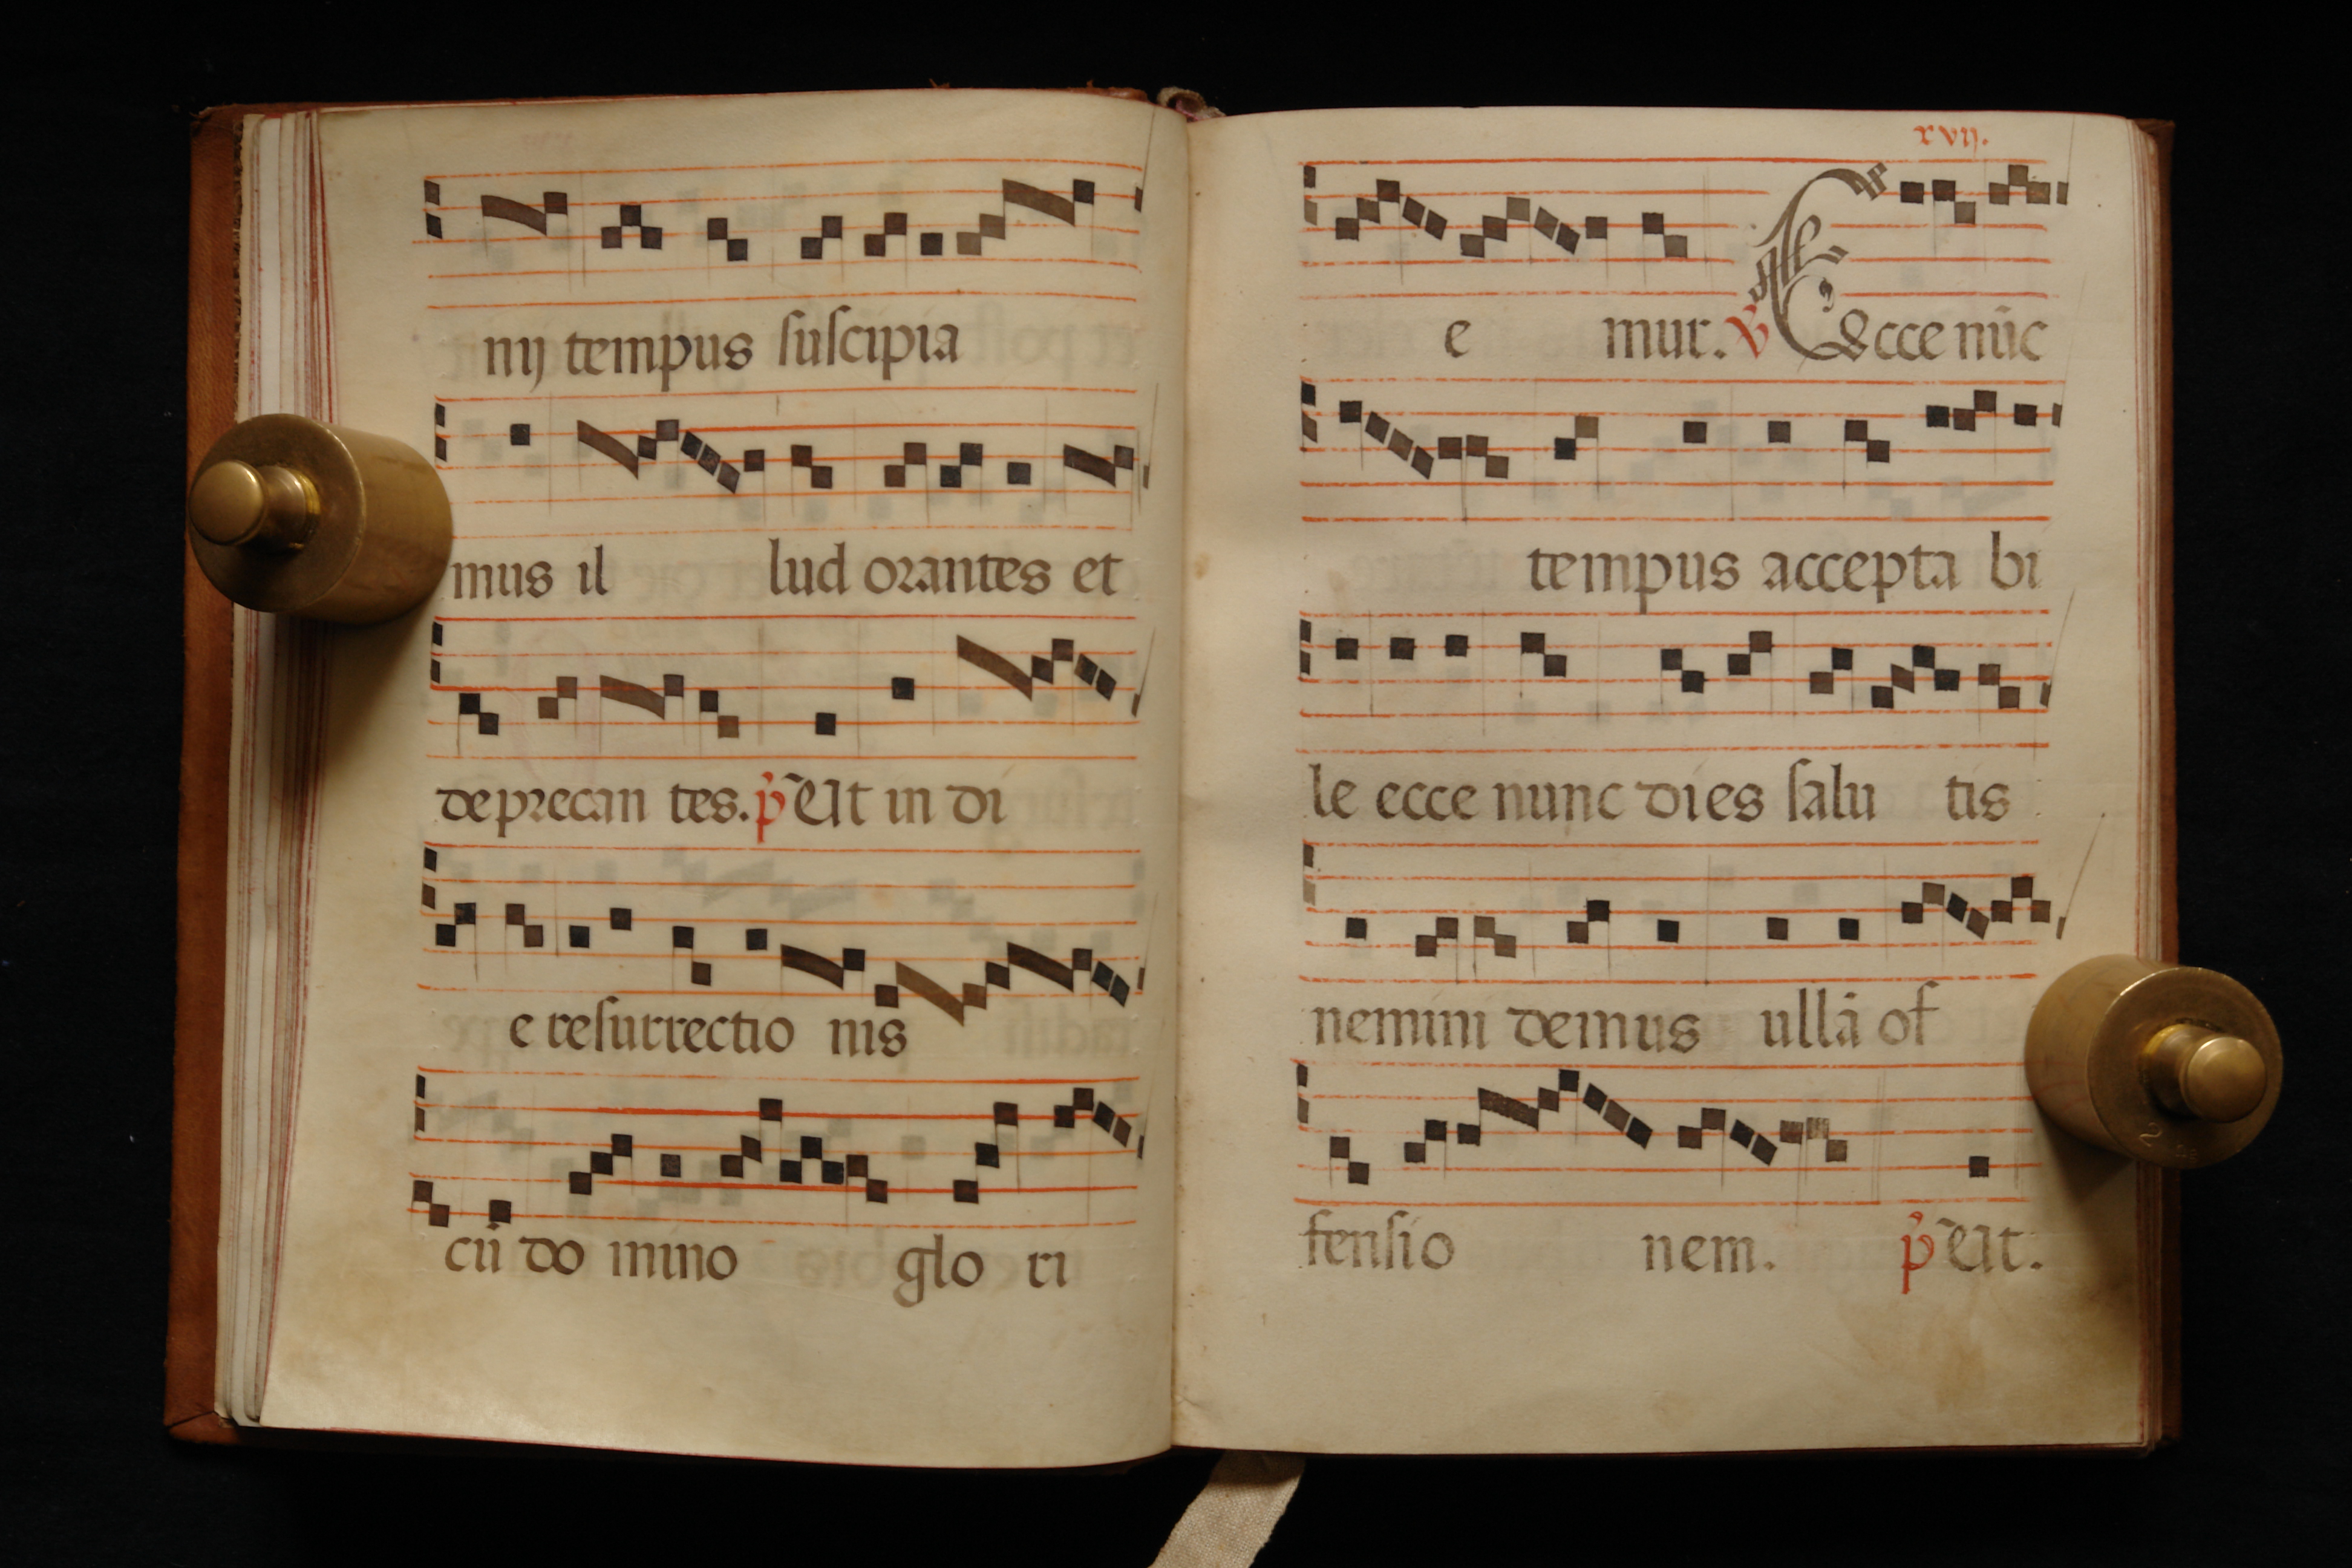 nij tempus suscipia
mus il lud orantes et
deprecan tes. p̃ Ut in di
e resurrectio nis
cū do mino glo ri
xvij.
e mur. ℣ Ecce nūc
tempus accepta bi
le ecce nunc dies salu tis
nemini demus ullā of
fensio nem. p̃ Ut.